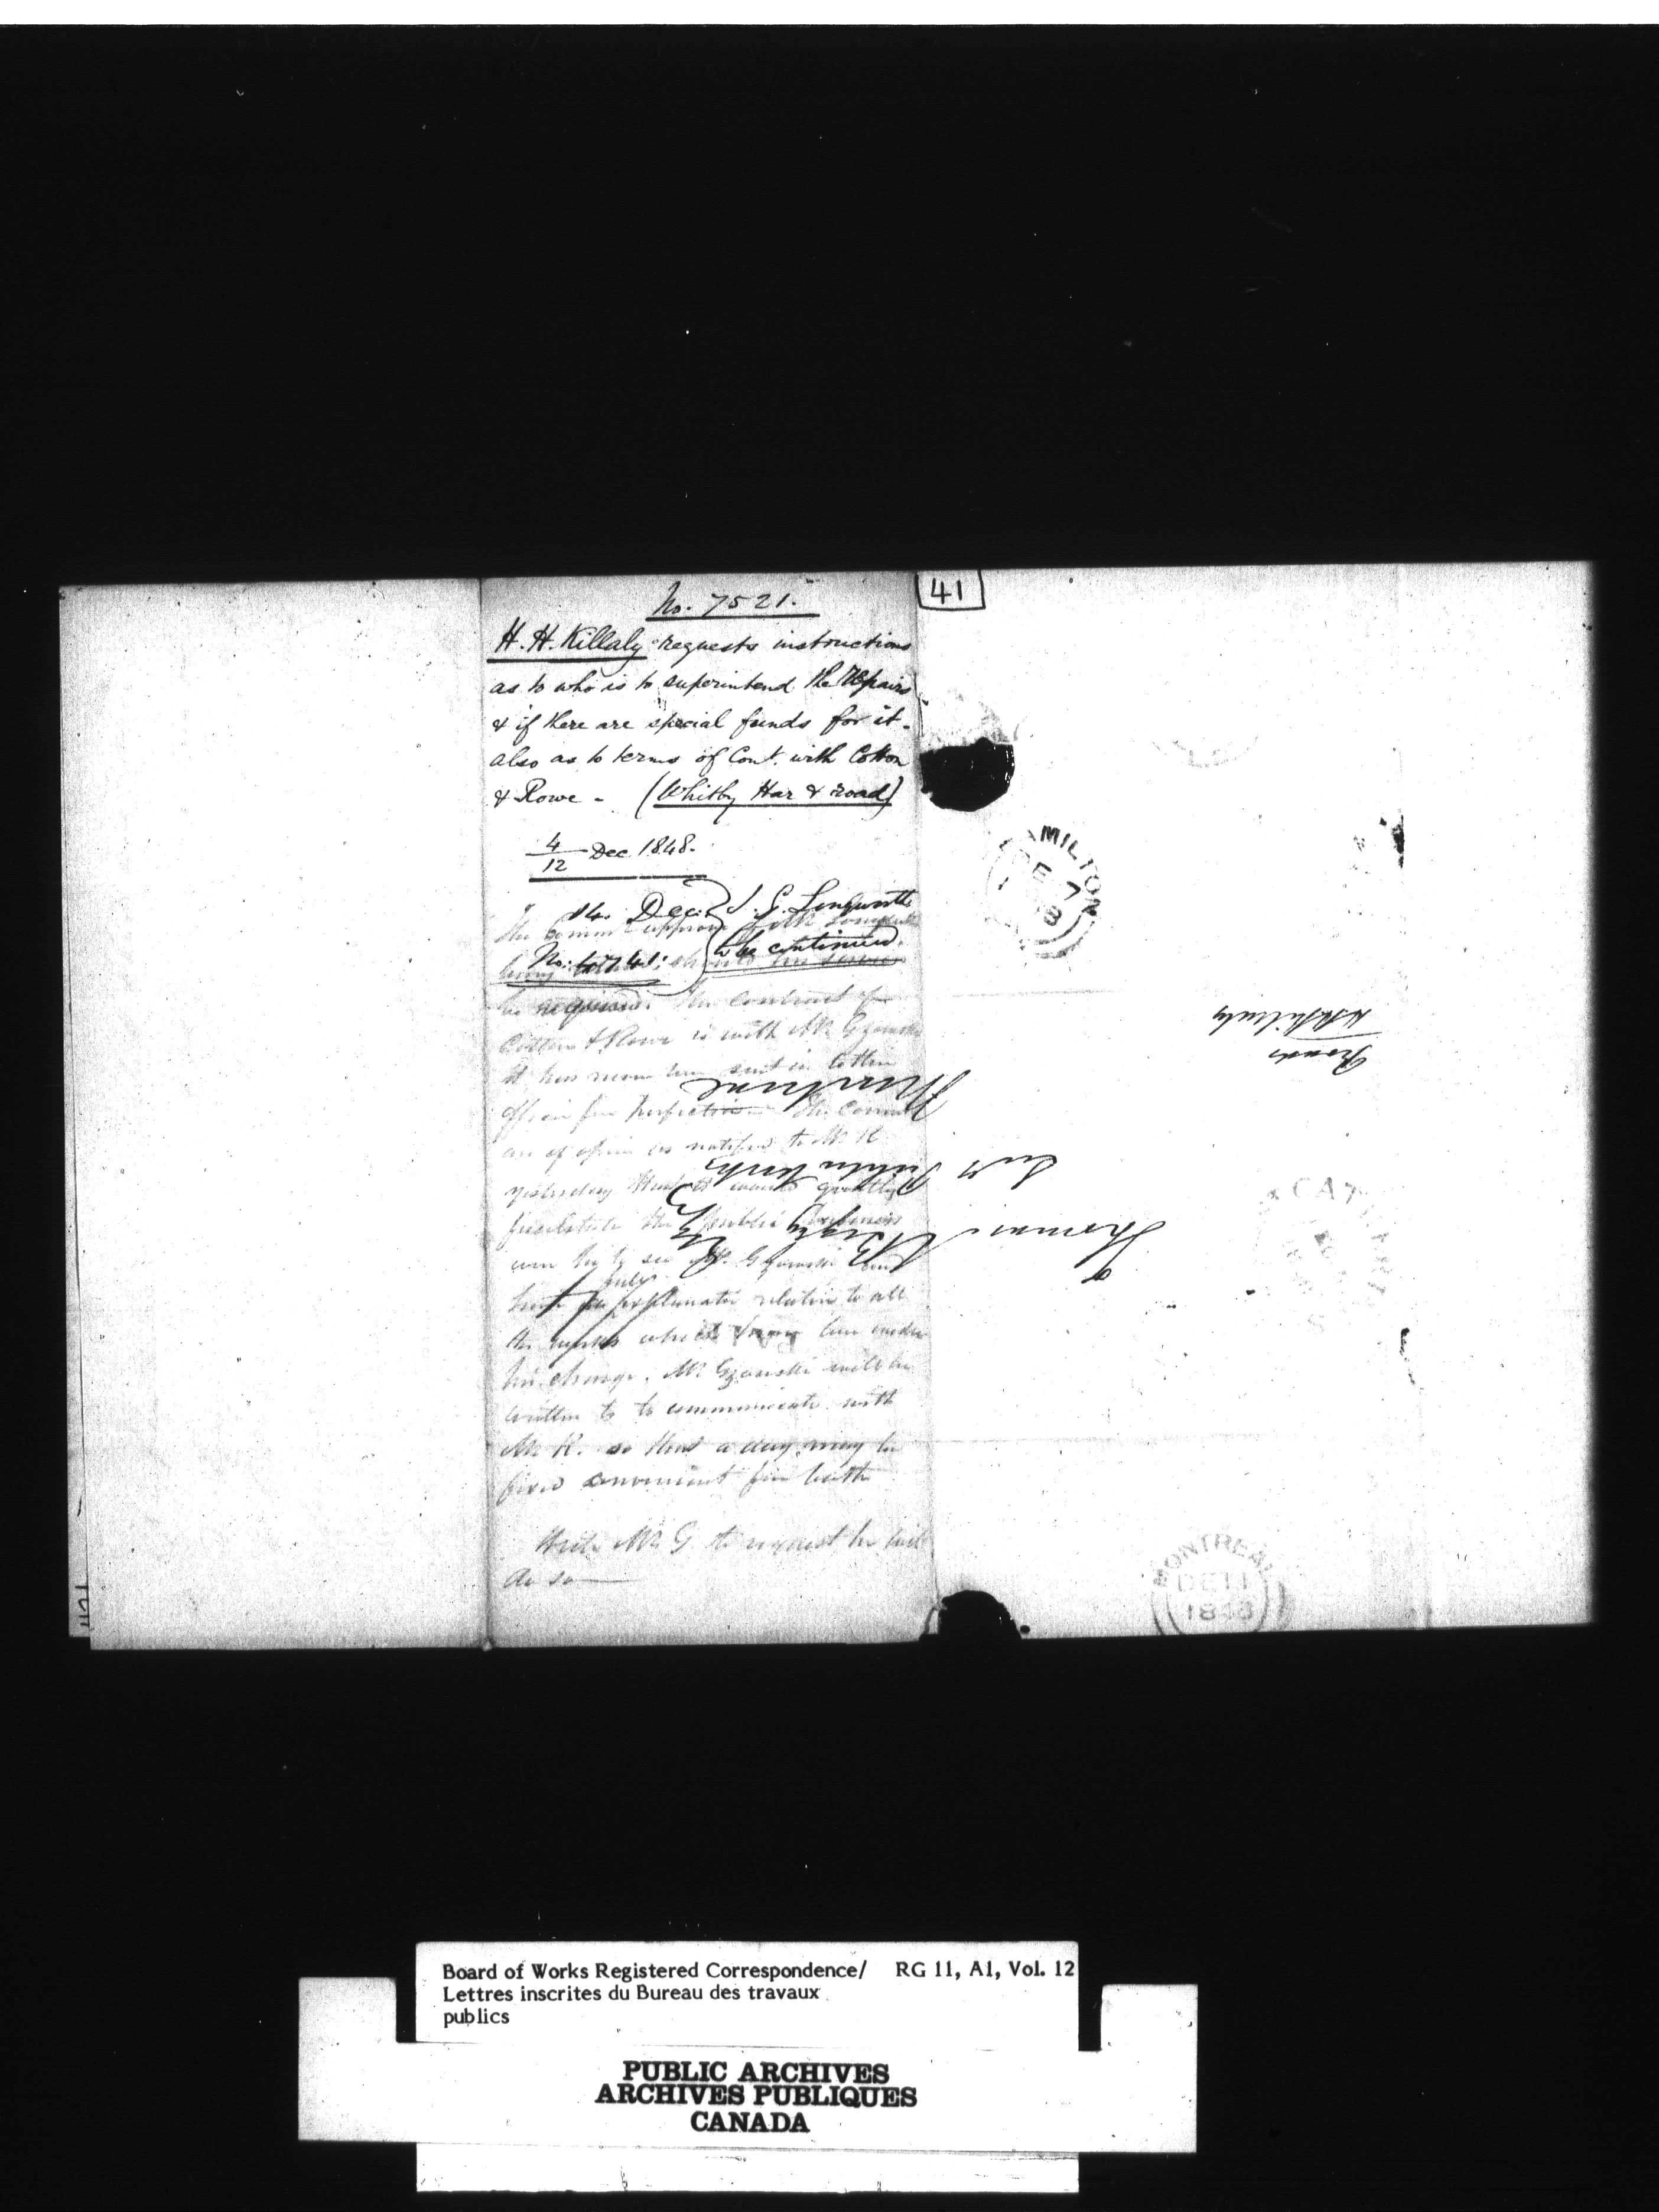 No. 7521.
41
H. H. Killaly requests instructions
as to who is to superintend the repairs
& if there are special funds for it -
also as to terms of Cont. with Cotton
& Rowe - (Whitby Har & road)
4/12 Dec 1848.
14. Dec.
No: 4741:
J. G. Longworth
to be continued.
The Commrs approve of Mr Longworth
being
be required. The Contract of
Cotton & Rowe is with Mr Gzowski
it has never been sent in to the
office for inspection - The Commrs
are of opinion as notified to Mr K
yesterday that it would greatly
facilitate the public business
were he to see Mr. Gzowski and
have full explanation relative to all
the works which have been under
his charge. Mr Gzowski will be
written to to communicate with
Mr K. so that a day may be
fixed convenient for both
Write Mr G to request he will
do so
Thomas A Begly Esqr
Public Works
Montreal
From
H H Killaly
HAMILTON
DE 7
MONTREAL
DE 11
1848
Board of Works Registered Correspondence/ RG 11, A1, Vol. 12
Lettres inscrites du Bureau des travaux
publics
PUBLIC ARCHIVES
ARCHIVES PUBLIQUES
CANADA